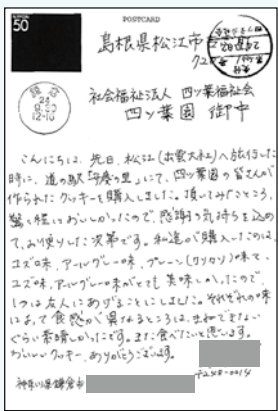 POSTCARD
NIPPON
50
島根県松江市
社会福祉法人 四ツ葉福祉会
四ツ葉園 御中
こんにちは、先日、松江(出雲大社)へ旅行した
時に、道の駅「 の里」にて、四ツ葉園の皆さんが
作られたクッキーを購入しました。頂いてみたところ、
驚く程においしかったので、感謝の気持ちを込め
て、お便りした次第です。私達が購入したのは、
ユズ味、アールグレー味、プレーン( )味で、
ユズ味、アールグレー味がとても美味しかったので、
1つは友人にあげることにしました。それぞれの味
によって食感が異なるところは、まねできない
ぐらい素晴しかったです。また食べたいと思います。
おいしいクッキー、ありがとうございます。
神奈川県鎌倉市
〒248-0014